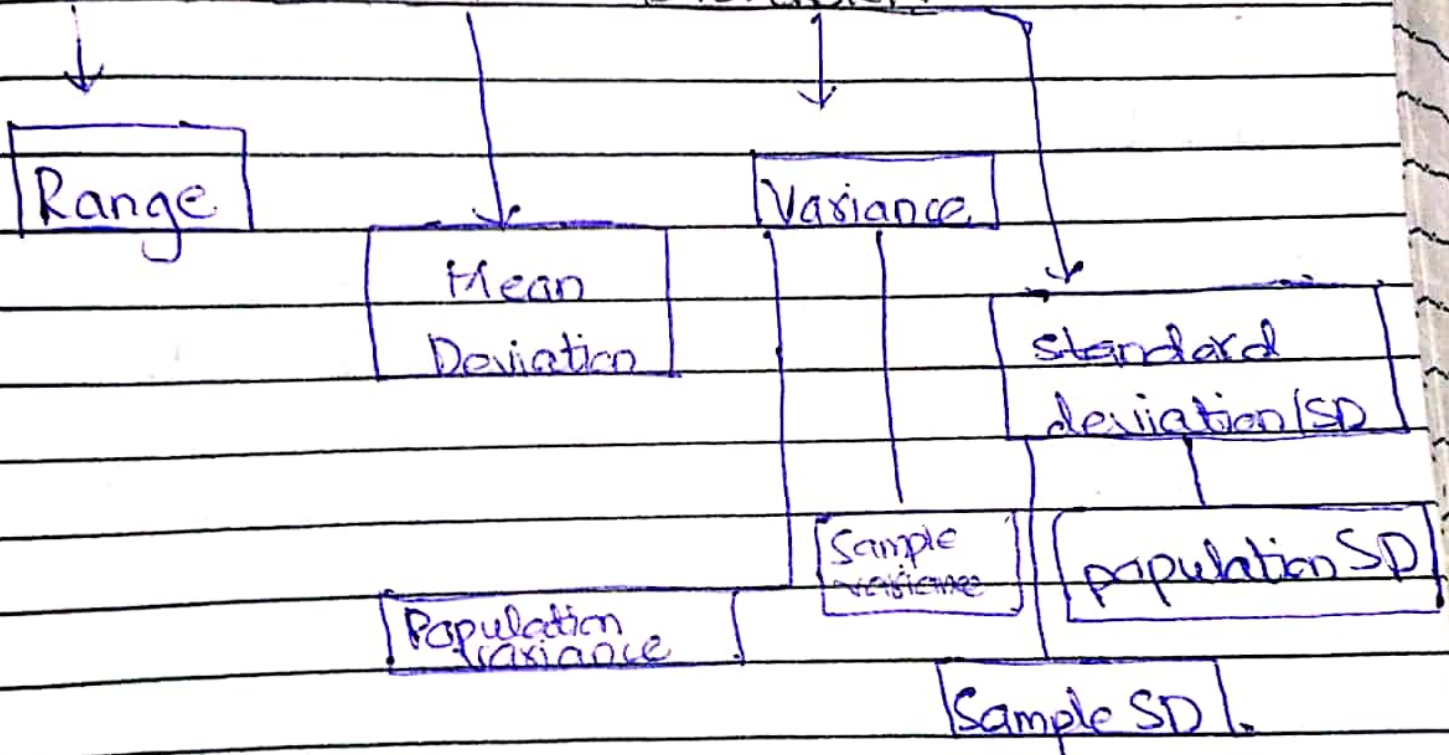 Range
Variance
Mean
Deviation
standard
deviation/SD
Sample
variance
population SD
Population
variance
Sample SD